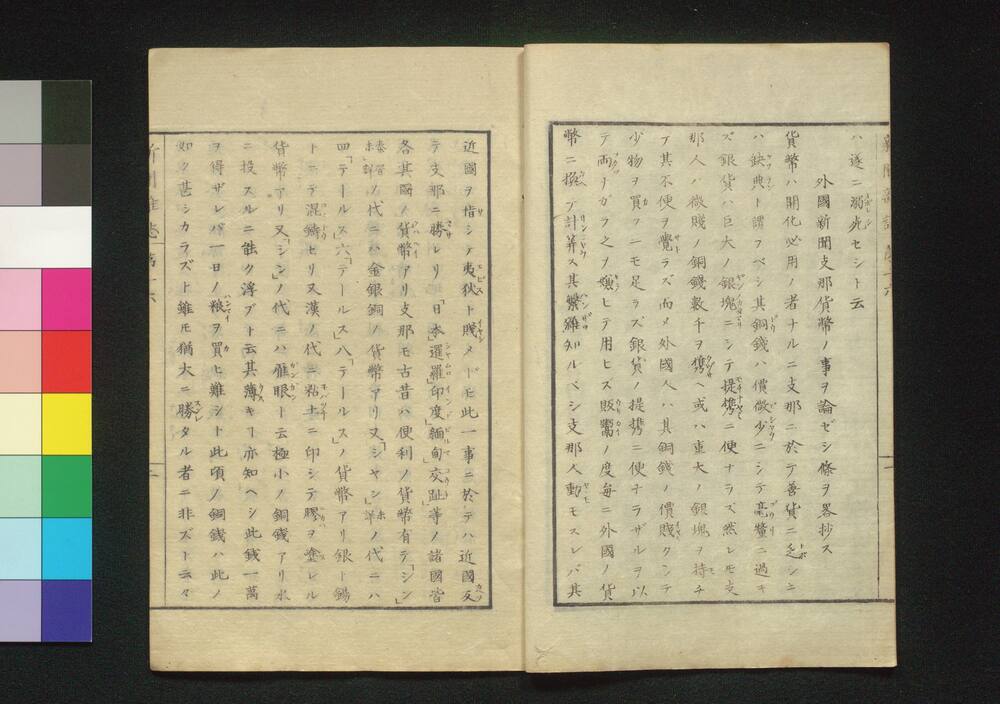 ハ遂ニ溺死セシト云
外國新聞支那貨幣ノ事ヲ論ゼシ條ヲ畧抄ス
貨幣ハ開化必用ノ者ナルニ支那ニ於テ善貨ニ乏シキ
ハ缺典ト謂フベシ其銅錢ハ價微少ニシテ毫釐ニ過キ
ズ銀貨ハ巨大ノ銀塊ニシテ提携ニ便ナラズ然レモ支
那人ハ微賤ノ銅錢數千ヲ携ヘ或ハ重大ノ銀塊ヲ持チ
テ其不便ヲ覺ラズ而メ外國人ハ其銅錢ノ價賤クシテ
少物ヲ買フニモ足ラズ銀貨ノ提携ニ便ナラザルヲ以
テ両ナガラ之ヲ嫌ヒテ用ヒズ販鬻ノ度毎ニ外國ノ貨
幣ニ換ブ計算ス其繁雜知ルベシ支那人動モスレバ其
近國ヲ指シテ夷狄ト賤メドモ此一事ニ於テハ近國反
テ支那ニ勝レリ「日本」暹羅「印度」緬甸「交趾」等ノ諸國皆
各其國ノ貨幣アリ支那モ古昔ハ便利ノ貨幣有テ「シン」
秦晋未詳ノ代ニハ金銀銅ノ貨幣アリ又「シャン」未詳ノ代ニハ
四「テールス」六「テールス」八「テールス」ノ貨幣アリ銀ト錫
トニテ混鑄セリ又漢ノ代ニ粘土ニ印シテ膠ヲ塗レル
貨幣アリ又「シン」ノ代ニハ雁眼ト云極小ノ銅錢アリ水
ニ投スルニ能ク浮ブト云其薄キヿ亦知ヘシ此錢一萬
ヲ得ザレバ一日ノ粮ヲ買ヒ難シト此項ノ銅錢ハ此ノ
如ク甚シカラズト雖モ猶大ニ勝タル者ニ非ズト云々